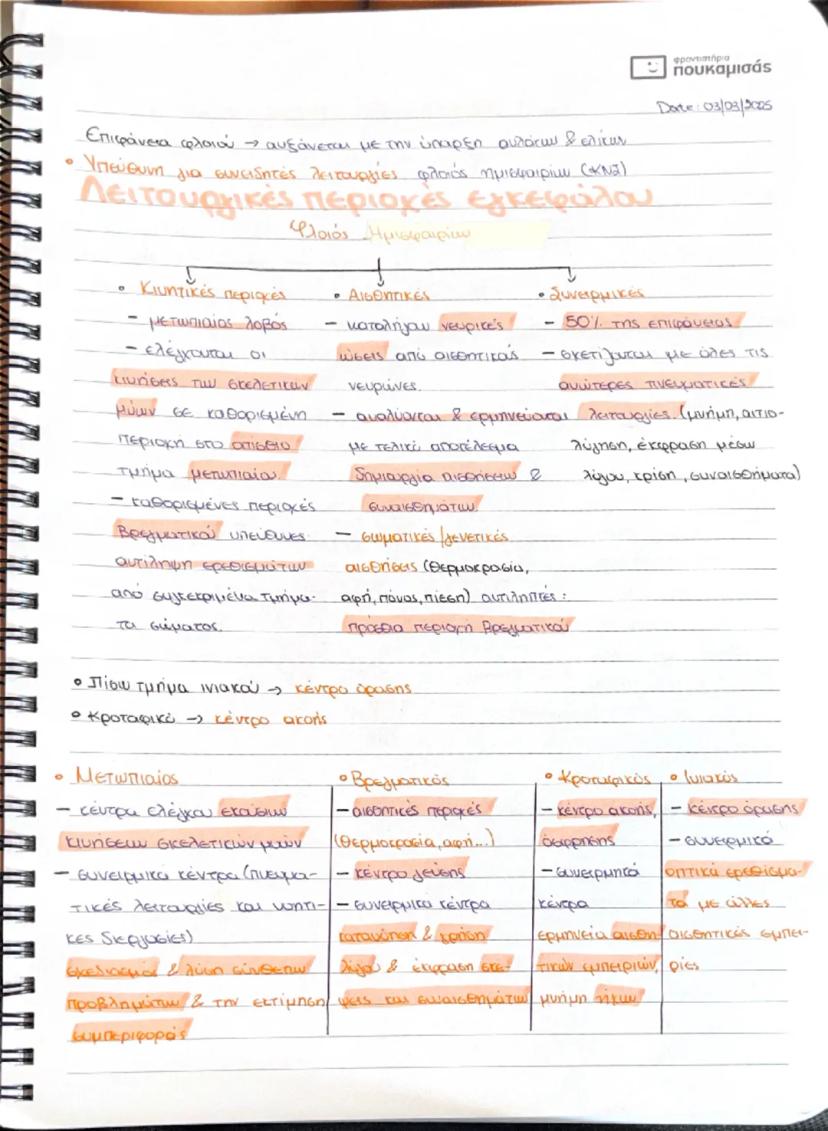 φροντιστήρια
πουκαμισάς
Date: 03/03/2025
Επιφάνεια φλοιού → αυξάνεται με την ύπαρξη αυλάκων & ελίκων
• Υπεύθυνη για συνειδητές λειτουργίες φλοιός ημισφαιρίων (*ΚΝΣ)
Λειτουργικές περιοχές εγκεφάλου
Φλοιός Ημισφαιρίων
• Κινητικές περιοχές
– μετωπιαίος λοβός
– ελέγχονται οι
κινήσεις των σκελετικών
μυών σε καθορισμένη
περιοχή στο οπίσθιο
τμήμα μετωπιαίου.
– καθορισμένες περιοχές
Βρεγματικού υπεύθυνες
αντίληψη ερεθισμάτων
από συγκεκριμένα τμήμα-
τα σώματος.
• Αισθητικές
– καταλήγουν νευρικές
ώσεις από αισθητικούς
νευρώνες.
– αναλύονται & ερμηνεύονται
με τελικό αποτέλεσμα
δημιουργία αισθήσεων &
συναισθημάτων.
– σωματικές/γενετικές
αισθήσεις (θερμοκρασία,
αφή, πόνος, πίεση) αντιληπτές:
πρόσθια περιοχή βρεγματικού
• Συνειρμικές
– 50% της επιφάνειας
– σχετίζονται με όλες τις
ανώτερες πνευματικές
λειτουργίες. (μνήμη, αιτιο-
λόγηση, έκφραση μέσω
λόγου, κρίση, συναισθήματα)
• Πίσω τμήμα ινιακού → κέντρο όρασης
• Κροταφικό → κέντρο ακοής
• Μετωπιαίος
– κέντρα ελέγχου εκούσιων
κινήσεων σκελετικών μυών
– συνειρμικά κέντρα (πνευμα-
τικές λειτουργίες και νοητι-
κές διεργασίες)
σχεδιασμοί & λύση σύνθετων
προβλημάτων & την εκτίμηση
συμπεριφοράς
• Βρεγματικός
– αισθητικές περιοχές
(θερμοκρασία, αφή...)
– κέντρο γεύσης
– συνειρμικά κέντρα
κατανόηση & χρήση
λόγου & έκφραση σκέ-
ψεις και συναισθημάτων
• Κροταφικός
– κέντρο ακοής,
όσφρησης
– συνειρμικά
κέντρα
ερμηνεία αισθη-
τικών εμπειριών,
μνήμη ήχων
• Ινιακός
– κέντρο όρασης
– συνειρμικό
οπτικά ερεθίσμα-
τα με άλλες
αισθητικές εμπει-
ρίες